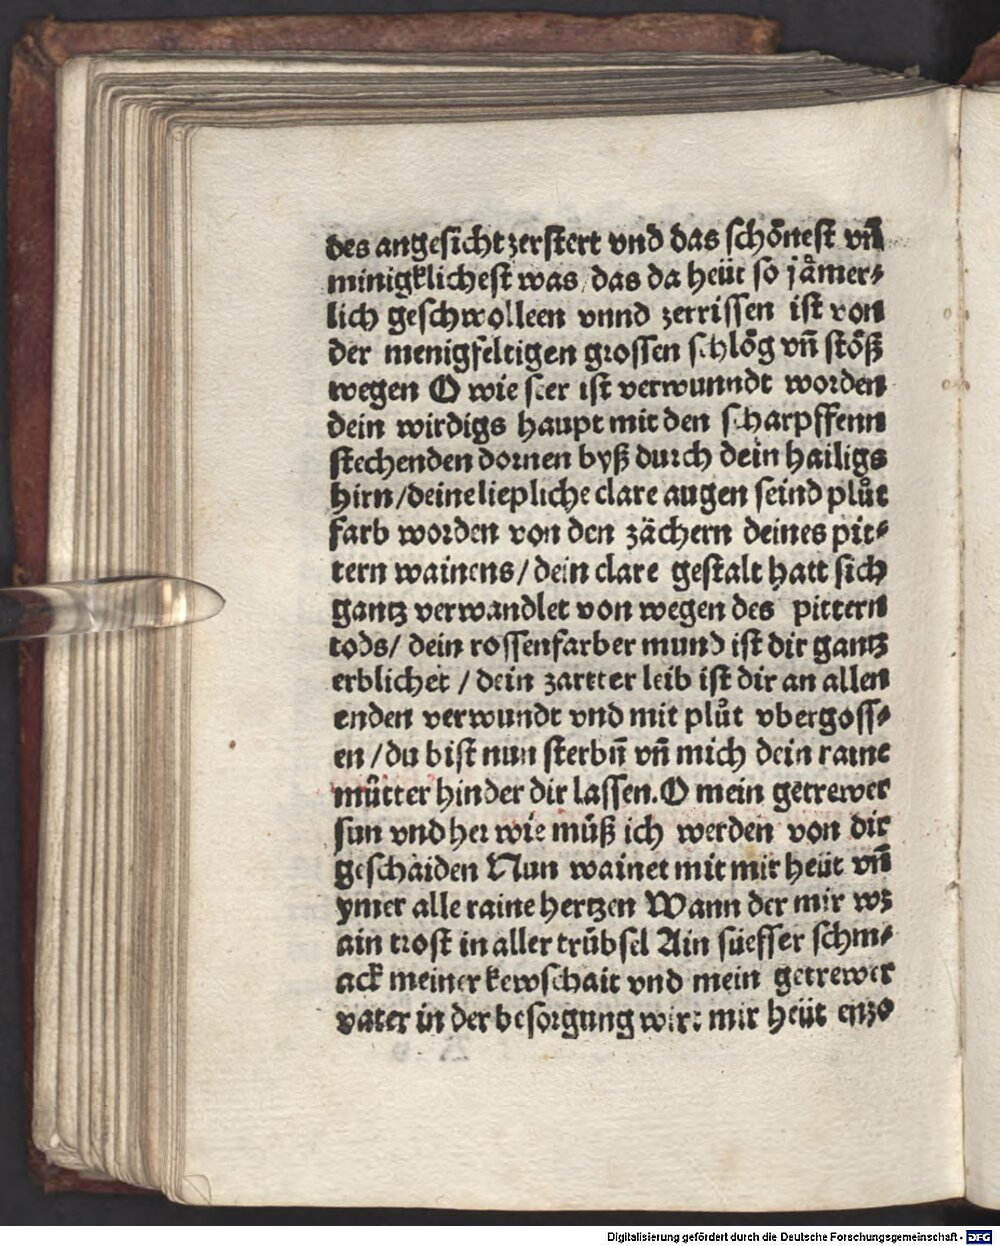 des angesicht zerstert vnd das schönest vñ
minigklichest was / das da heüt so jåmer⸗
lich geschwolleen vnnd zerrissen ist von
der menigfeltigen grossen schlög vñ stöß
wegen O wie seer ist verwunndt worden
dein wirdigs haupt mit den scharpffenn
stechenden dornen byß durch dein hailigs
hirn / deine liepliche clare augen seind plůt
farb worden von den zächern deines pit⸗
tern wainens / dein clare gestalt hatt sich
gantz verwandlet von wegen des pittern
tods / dein rossenfarber mund ist dir gantz
erblichet / dein zartter leib ist dir an allen
enden verwundt vnd mit plůt vbergoss⸗
en / du bist nun sterbñ vñ mich dein raine
můtter hinder dir lassen. O mein getrewer
sun vnd her wie můß ich werden von dir
geschaiden Nun wainet mit mir heüt vñ
ymer alle raine hertzen Wann der mir wz
ain trost in aller trübsel Ain süesser schm⸗
ack meiner kewschait vnd mein getrewer
vater in der besorgung wirt mir heüt enzo
Digitalisierung gefördert durch die Deutsche Forschungsgemeinschaft - DFG